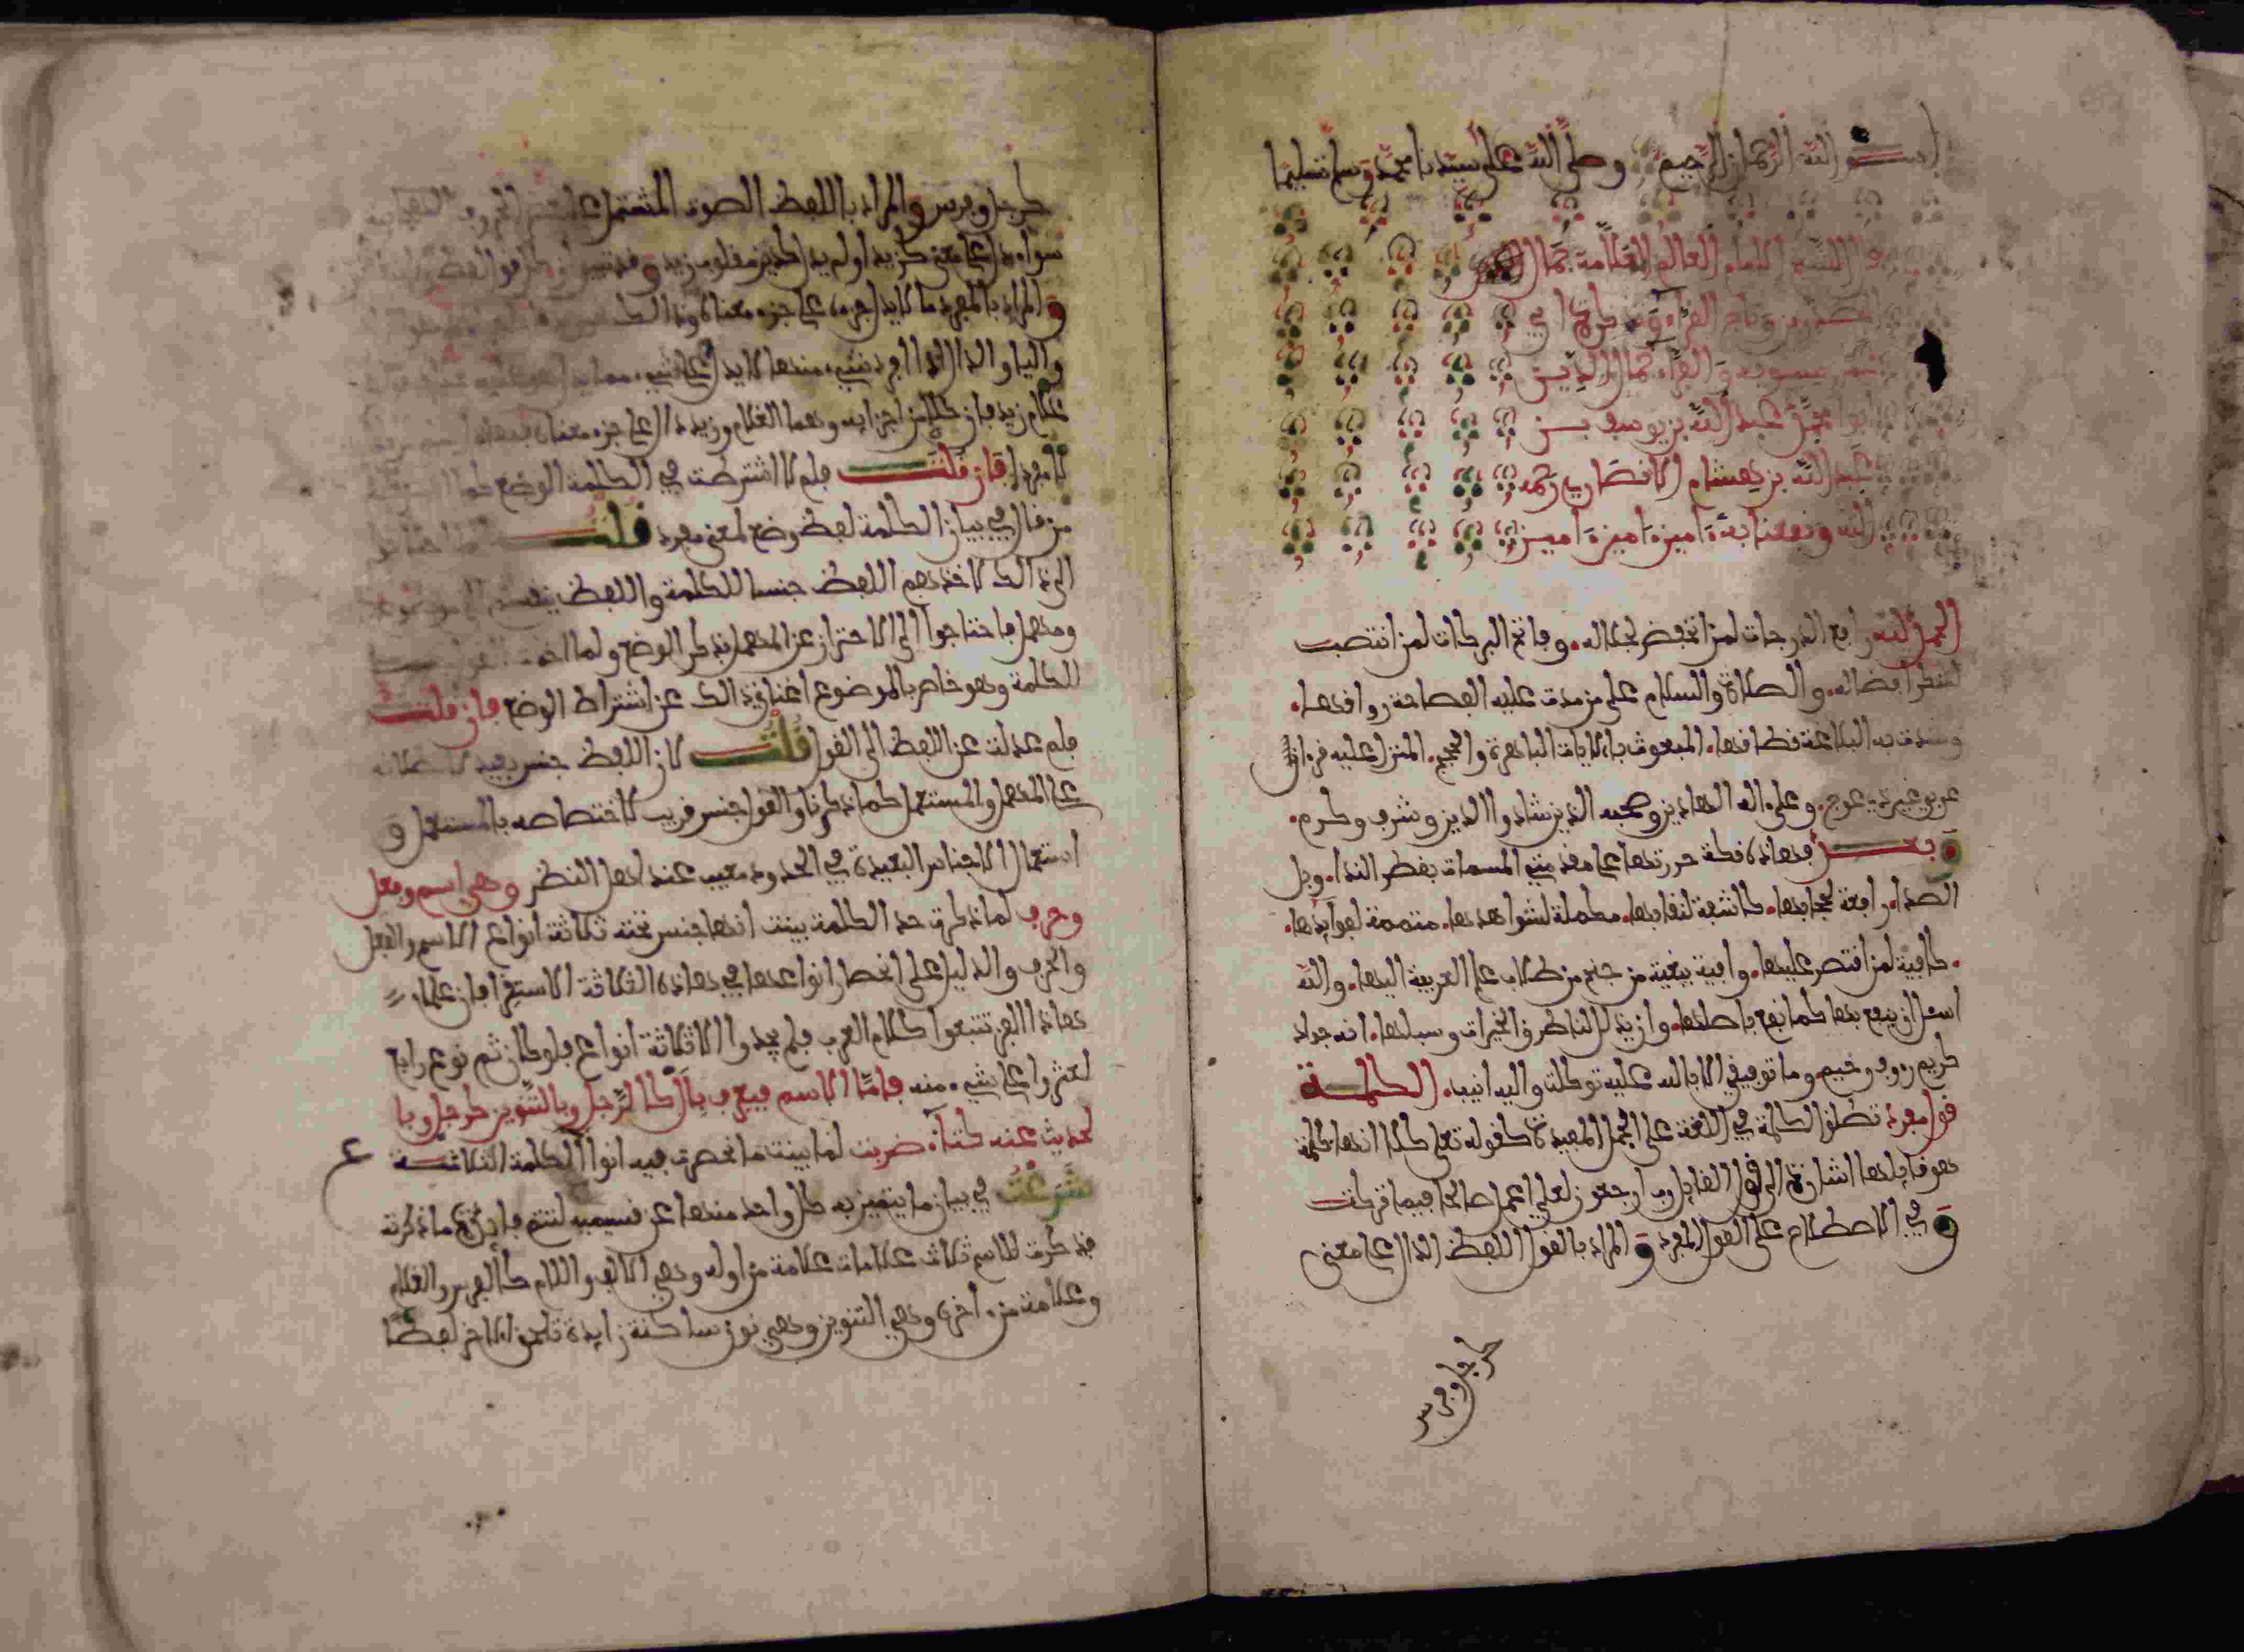 بسم الله الرحمان الرحيم وصلى الله على سيدنا محمد وسلم تسليما
الشيخ الامام العالم العلامة جمال
المتصدرين وتاج القراء تذكرة ابي
عمرو سيبويه والفراء جمال الدين
ابو محمد عبد الله بن يوسف بن
عبد الله بن هشام الانصاري رحمه
الله ونفعنا به ءامين ءامين ءامين
الحمد لله رافع الدرجات لمن انخفض لجلاله. وفاتح البركات لمن انتصب
لشكر افضاله. والصلاة والسلام على من مدت عليه الفصاحة رواقها.
وشدت به البلاغة نطاقها. المبعوث بالايات الباهرة والحجج. المنزل عليه قرءان
عربي غير ذي عوج. وعلى ءاله الهادين وصحبه الذين شادوا الدين وشرف وكرم.
وبعد فهاذه نكت حررتها على مقدمتي المسمات بقطر الندا. وبل
الصدا. رافعة لحجابها. كاشفة لنقابها. مكملة لشواهدها. متممة لفوايدها.
. كافية لمن اقتصر عليها. وافية ببغية من جنح من طلاب علم العربية اليها. والله
اسئل ان ينفع بها كما نفع باصلها. وان يذلل لنا طرق الخيرات وسبلها. انه جواد
كريم رءوف رحيم وما توفيقي الا بالله عليه توكلت واليه انيب. الكلمة
قول مفرد تطلق الكلمة في اللغة على الجمل المفيدة كقوله تعلى كلا انها كلمة
هو قايلها اشارة الى قول القايل رب ارجعون لعلي اعمل صالحا فيما تركت
وفي الاصطلاح على القول المفرد والمراد بالقول اللفظ الدال على معنى
كرجل وفرس
كرجل وفرس والمراد باللفظ الصوت المشتمل على بعض الحروف
سواء دل على معنى كزيد او لم يدل كديز مقلوب زيد وقد تبين ان كل قول لفظ
والمراد بالمفرد ما لا يدل جزءه على جزء معناه وذالك
واليا والدال اذا افردت شيء منها لا يدل على شيء مما يدل
غلام زيد فان كلا من اجزايه وهما الغلام وزيد دال على جزء معناه فهاذا يسمى
لا مفردا فان قلت فلم لا اشترطت في الكلمة الوضع كما اشترط
من قال في بيان الكلمة لفظ وضع لمعنى مفرد قلت انما احتاجوا
الى ذالك لاخذهم اللفظ جنسا للكلمة واللفظ ينقسم الى موضوع
ومهمل فاحتاجوا الى الاحتراز عن المهمل بذكر الوضع ولما اخذت القول جنسا
للكلمة وهو خاص بالموضوع اغناني ذالك عن اشتراط الوضع فان قلت
فلم عدلت عن اللفظ الى القول قلت لان اللفظ جنس بعيد لانطلاقه
على المهمل والمستعمل كما ذكرنا والقول جنس قريب لاختصاصه بالمستعمل و
استعمال الاجناس البعيدة في الحدود معيب عند اهل النظر وهي اسم وفعل
وحرف لما ذكرت حد الكلمة بينت انها جنس تحته ثلاثة انواع الاسم والفعل
والحرف والدليل على انحصار انواعها في هاذه الثلاثة الاستقراء فان علماء
هاذا الفن تتبعوا كلام العرب فلم يجدوا الا ثلاثة انواع فلو كان ثم نوع رابع
لعثروا على شيء منه فاما الاسم فيعرف بال كالرجل وبالتنوين كرجل وبا
لحديث عنه كتاء ضربت لما بينت ما انحصرت فيه انواع الكلمة الثلاثة
شرعت في بيان ما يتميز به كل واحد منها عن قسيميه لتتم فايدة ما ذكرته
فذكرت للاسم ثلاث علامات علامة من اوله وهي الالف واللام كالفرس والغلام
وعلامة من ءاخره وهي التنوين وهي نون ساكنة زايدة تلحق الاخر لفظا